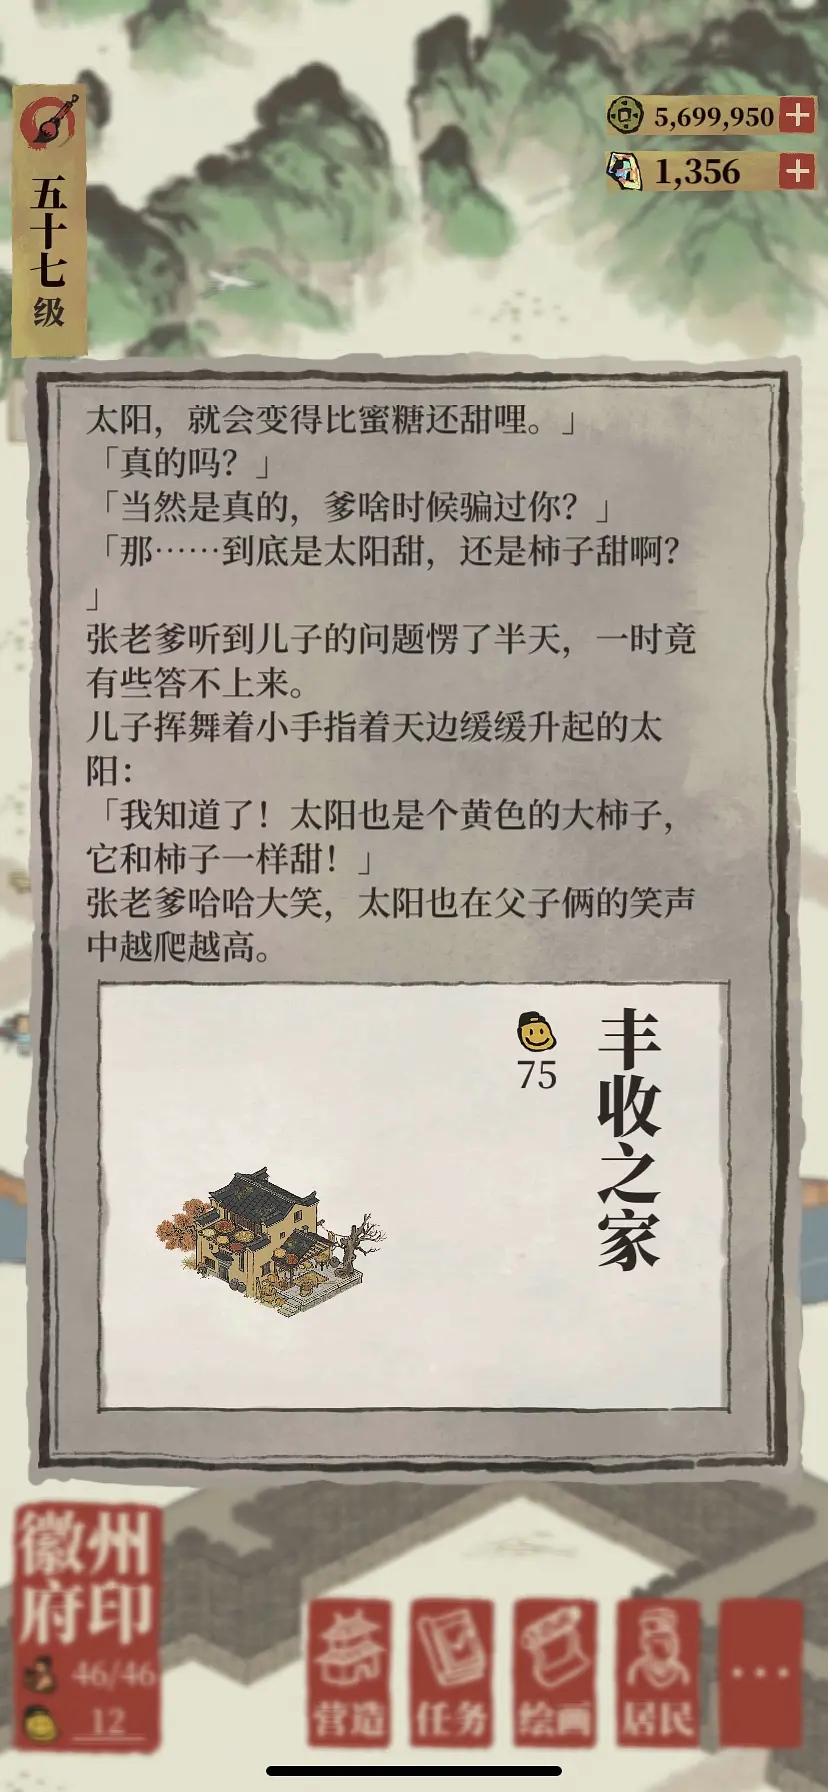 五十七级
5,699,950
1,356
太阳，就会变得比蜜糖还甜哩。」
「真的吗？」
「当然是真的，爹啥时候骗过你？」
「那……到底是太阳甜，还是柿子甜啊？
」
张老爹听到儿子的问题愣了半天，一时竟
有些答不上来。
儿子挥舞着小手指着天边缓缓升起的太
阳：
「我知道了！太阳也是个黄色的大柿子，
它和柿子一样甜！」
张老爹哈哈大笑，太阳也在父子俩的笑声
中越爬越高。
丰收之家
75
徽州
府印
46/46
12
营造
任务
绘画
居民
...